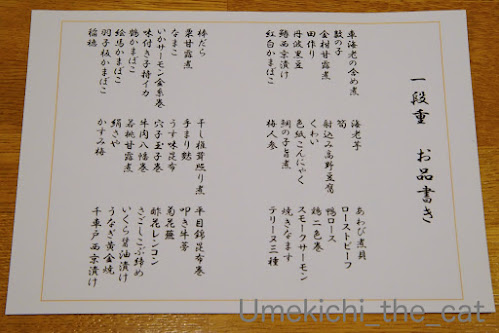 一段重 お品書き
車海老の含め煮
数の子
金柑甘露煮
田作り
丹波黒豆
鰆西京漬け
紅白かまぼこ
海老芋
筍
射込み高野豆腐
くわい
色紙こんにゃく
鯛の子旨煮
梅人参
あわび煮貝
ローストビーフ
鴨ロース
鶏二色巻
スモークサーモン
焼きなます
テリーヌ三種
棒だら
栗甘露煮
なまこ
いかサーモン金糸巻
味付き子持イカ
鶴かまぼこ
絵馬かまぼこ
羽子板かまぼこ
稲穂
干し椎茸照り煮
手まり麩
うす味昆布
穴子玉子巻
牛肉八幡巻
若桃甘露煮
絹さや
かすみ梅
平目錦昆布巻
叩き牛蒡
菊花蕪
酢花レンコン
さごしこぶ締め
いくら醤油漬け
うなぎ黄金焼
千車戸西京漬け
Umekichi_the_cat